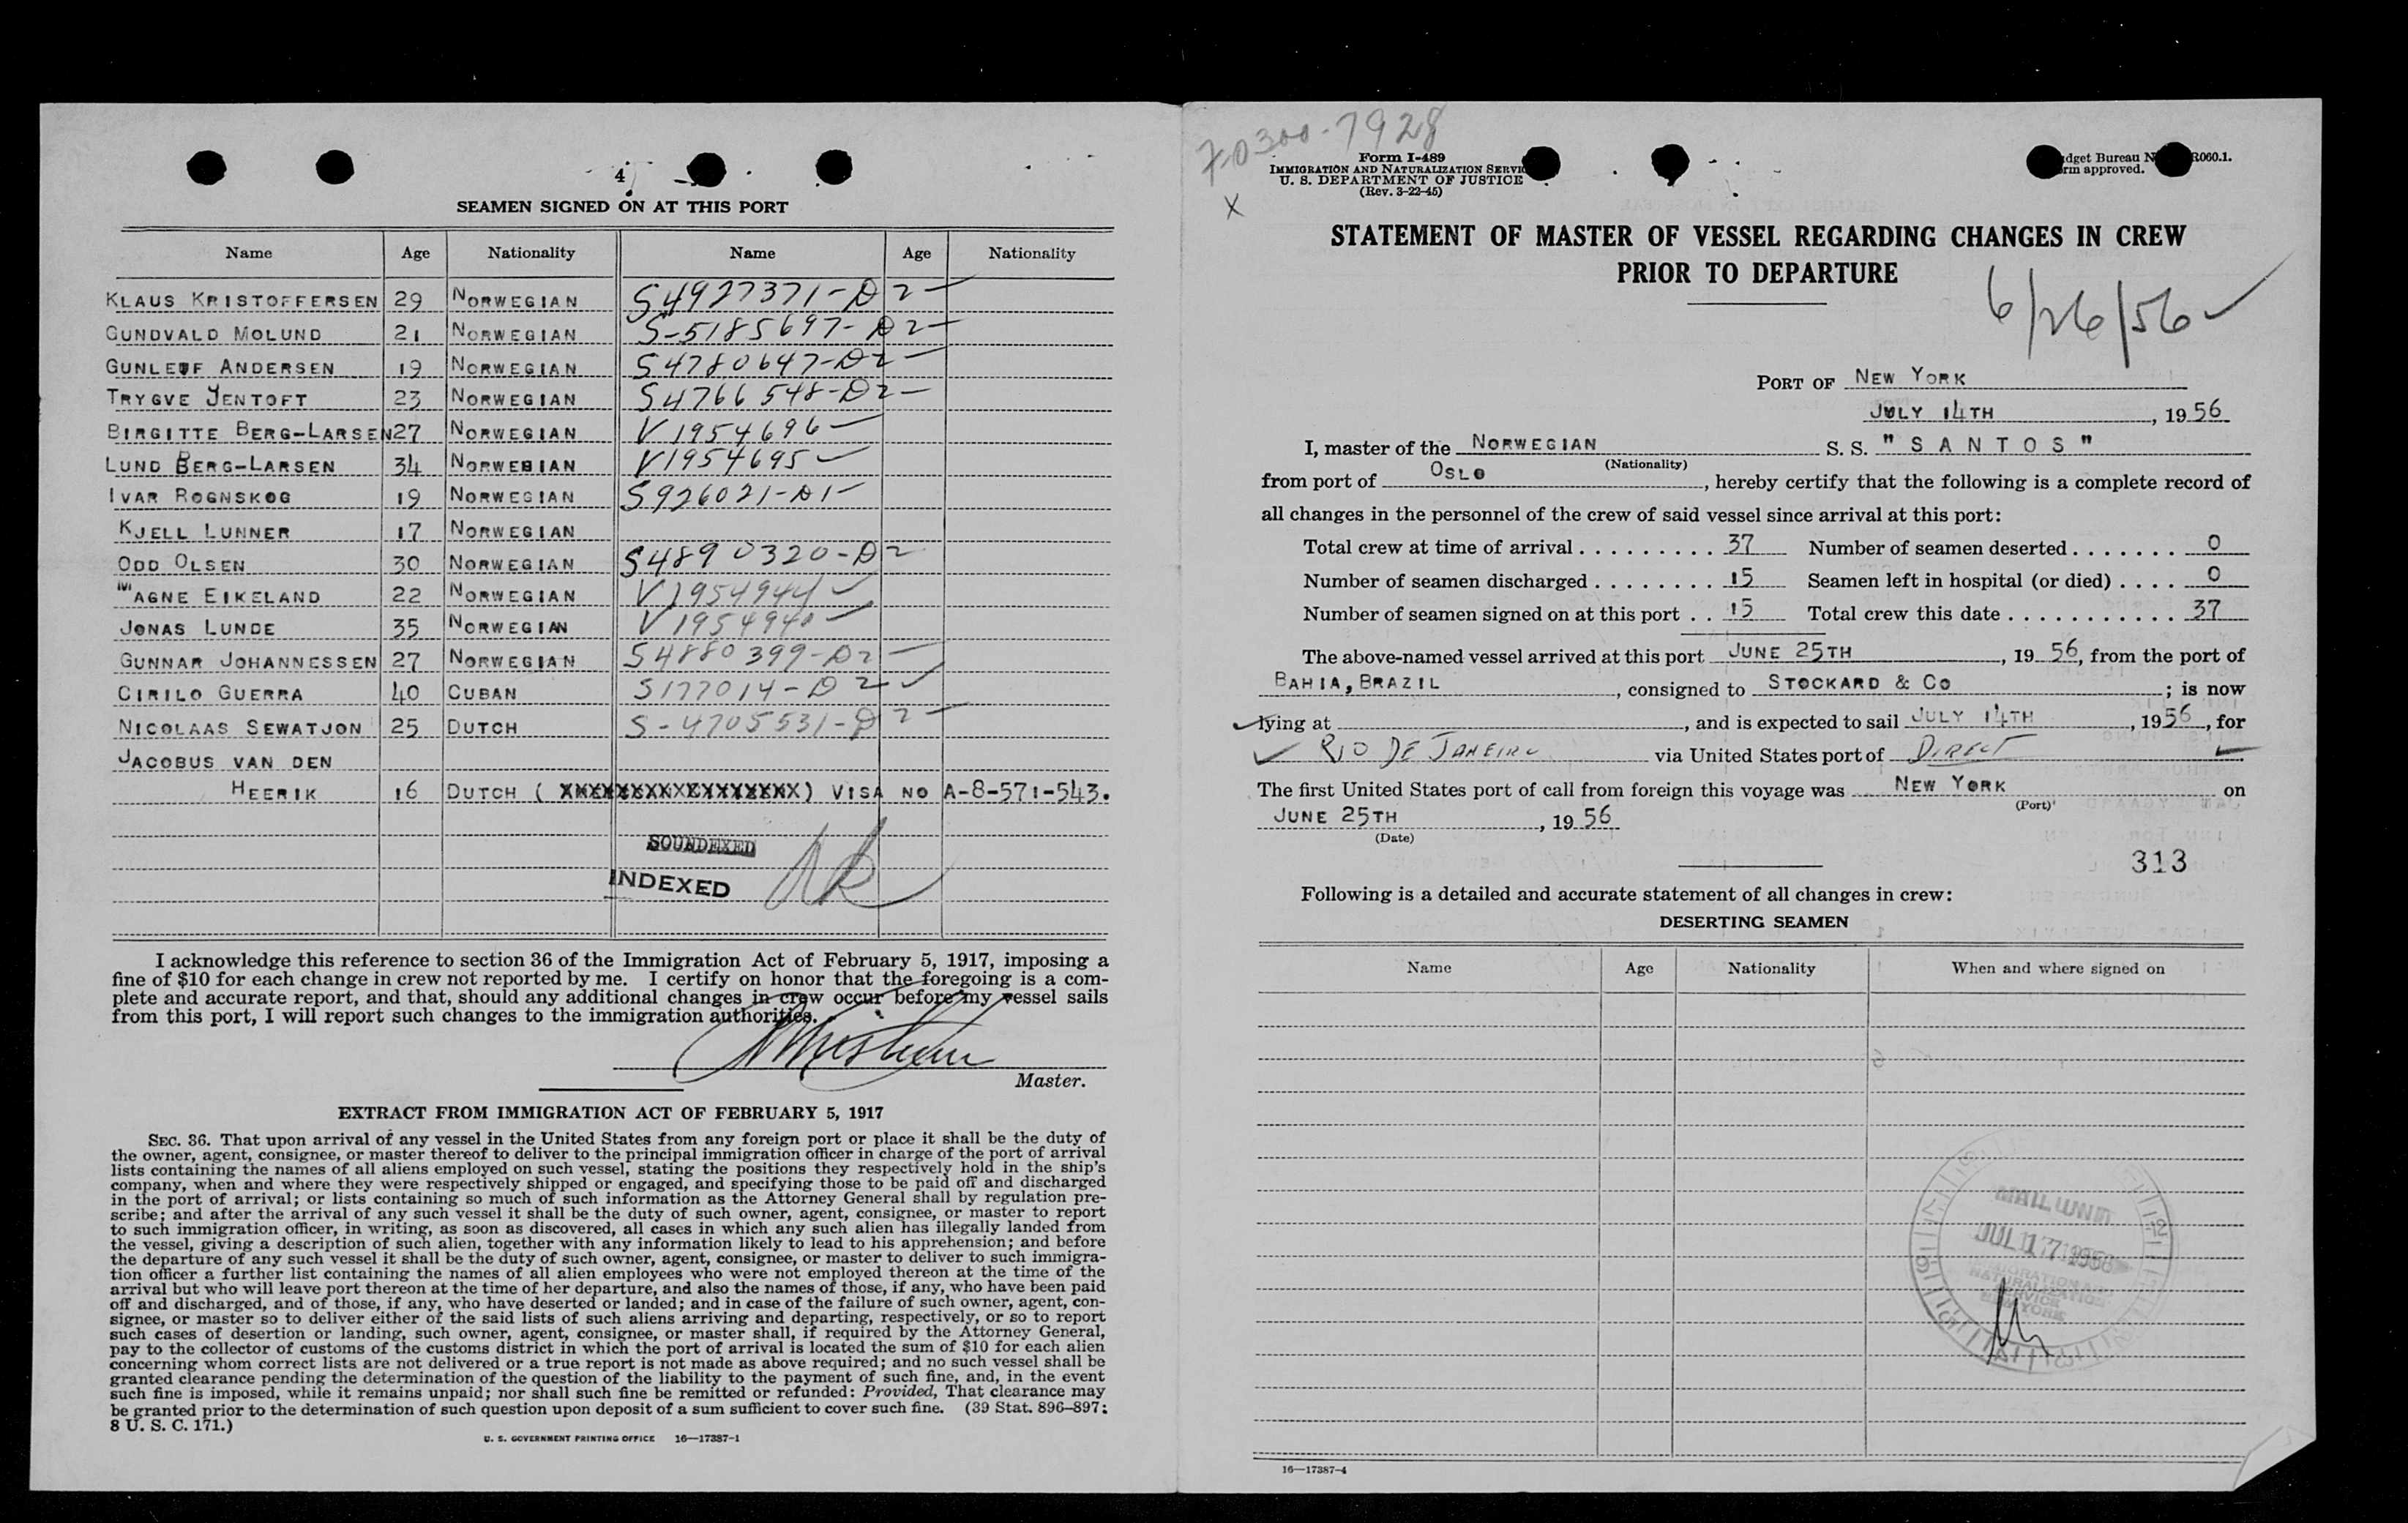 4
SEAMEN SIGNED ON AT THIS PORT
Name Age Nationality Name Age Nationality
KLAUS KRISTOFFERSEN 29 NORWEGIAN S4927371-D2-
GUNDVALD MOLUND 21 NORWEGIAN S-5185697-D2-
GUNLEUF ANDERSEN 19 NORWEGIAN S4780647-D2-
TRYGVE JENTOFT 23 NORWEGIAN S4766548-D2-
BIRGITTE BERG-LARSEN 27 NORWEGIAN V1954696
LUND BERG-LARSEN 34 NORWEGIAN V1954695
IVAR ROGNSKOG 19 NORWEGIAN S926021-D1-
KJELL LUNNER 17 NORWEGIAN
ODD OLSEN 30 NORWEGIAN S4890320-D2
MAGNE EIKELAND 22 NORWEGIAN V1954944
JONAS LUNDE 35 NORWEGIAN V1954940
GUNNAR JOHANNESSEN 27 NORWEGIAN S4880399-D2-
CIRILO GUERRA 40 CUBAN S177014-D2
NICOLAAS SEWATJON 25 DUTCH S-4705531-D2-
JACOBUS VAN DEN
HEERIK 16 DUTCH ( ) VISA NO A-8-571-543.
SOUNDEXED
INDEXED
I acknowledge this reference to section 36 of the Immigration Act of February 5, 1917, imposing a
fine of $10 for each change in crew not reported by me. I certify on honor that the foregoing is a com-
plete and accurate report, and that, should any additional changes in crew occur before my vessel sails
from this port, I will report such changes to the immigration authorities.
Master.
EXTRACT FROM IMMIGRATION ACT OF FEBRUARY 5, 1917
SEC. 36. That upon arrival of any vessel in the United States from any foreign port or place it shall be the duty of
the owner, agent, consignee, or master thereof to deliver to the principal immigration officer in charge of the port of arrival
lists containing the names of all aliens employed on such vessel, stating the positions they respectively hold in the ship's
company, when and where they were respectively shipped or engaged, and specifying those to be paid off and discharged
in the port of arrival; or lists containing so much of such information as the Attorney General shall by regulation pre-
scribe; and after the arrival of any such vessel it shall be the duty of such owner, agent, consignee, or master to report
to such immigration officer, in writing, as soon as discovered, all cases in which any such alien has illegally landed from
the vessel, giving a description of such alien, together with any information likely to lead to his apprehension; and before
the departure of any such vessel it shall be the duty of such owner, agent, consignee, or master to deliver to such immigra-
tion officer a further list containing the names of all alien employees who were not employed thereon at the time of the
arrival but who will leave port thereon at the time of her departure, and also the names of those, if any, who have been paid
off and discharged, and of those, if any, who have deserted or landed; and in case of the failure of such owner, agent, con-
signee, or master so to deliver either of the said lists of such aliens arriving and departing, respectively, or so to report
such cases of desertion or landing, such owner, agent, consignee, or master shall, if required by the Attorney General,
pay to the collector of customs of the customs district in which the port of arrival is located the sum of $10 for each alien
concerning whom correct lists are not delivered or a true report is not made as above required; and no such vessel shall be
granted clearance pending the determination of the question of the liability to the payment of such fine, and, in the event
such fine is imposed, while it remains unpaid; nor shall such fine be remitted or refunded: Provided, That clearance may
be granted prior to the determination of such question upon deposit of a sum sufficient to cover such fine. (39 Stat. 896-897;
8 U. S. C. 171.)
U. S. GOVERNMENT PRINTING OFFICE 16—17387-1
70300-7928
X
Form I-489
IMMIGRATION AND NATURALIZATION SERVIC
U. S. DEPARTMENT OF JUSTICE
(Rev. 3-22-45)
dget Bureau N R060.1.
rm approved.
STATEMENT OF MASTER OF VESSEL REGARDING CHANGES IN CREW
PRIOR TO DEPARTURE
6/26/56
PORT OF NEW YORK
JULY 14TH, 1956
I, master of the NORWEGIAN S. S. "SANTOS"
(Nationality)
from port of OSLO, hereby certify that the following is a complete record of
all changes in the personnel of the crew of said vessel since arrival at this port:
Total crew at time of arrival . . . . . . . . . 37 Number of seamen deserted . . . . . . . 0
Number of seamen discharged . . . . . . . . 15 Seamen left in hospital (or died) . . . . 0
Number of seamen signed on at this port . . 15 Total crew this date . . . . . . . . . . . 37
The above-named vessel arrived at this port JUNE 25TH, 1956, from the port of
BAHIA, BRAZIL, consigned to STOCKARD & CO; is now
lying at , and is expected to sail JULY 14TH, 1956, for
RIO DE JANEIRO via United States port of DIRECT
The first United States port of call from foreign this voyage was NEW YORK on
(Port)
JUNE 25TH, 1956
(Date)
313
Following is a detailed and accurate statement of all changes in crew:
DESERTING SEAMEN
Name Age Nationality When and where signed on
MAIL UNIT
JUL 17 1956
NATURALIZATION
SERVICE
NEW YORK
16—17387-4